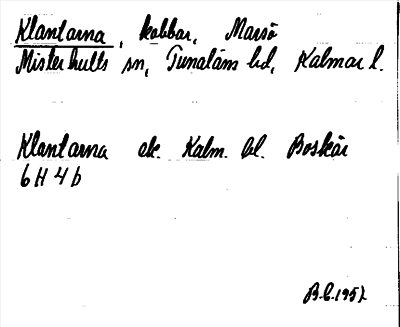 Klantarna, kobbar, Marsö
Misterhults sn, Tunaläns hd, Kalmar l.
Klantarna ek. Kalm. bl. Boskär
6 H 4 b
B.E. 1957